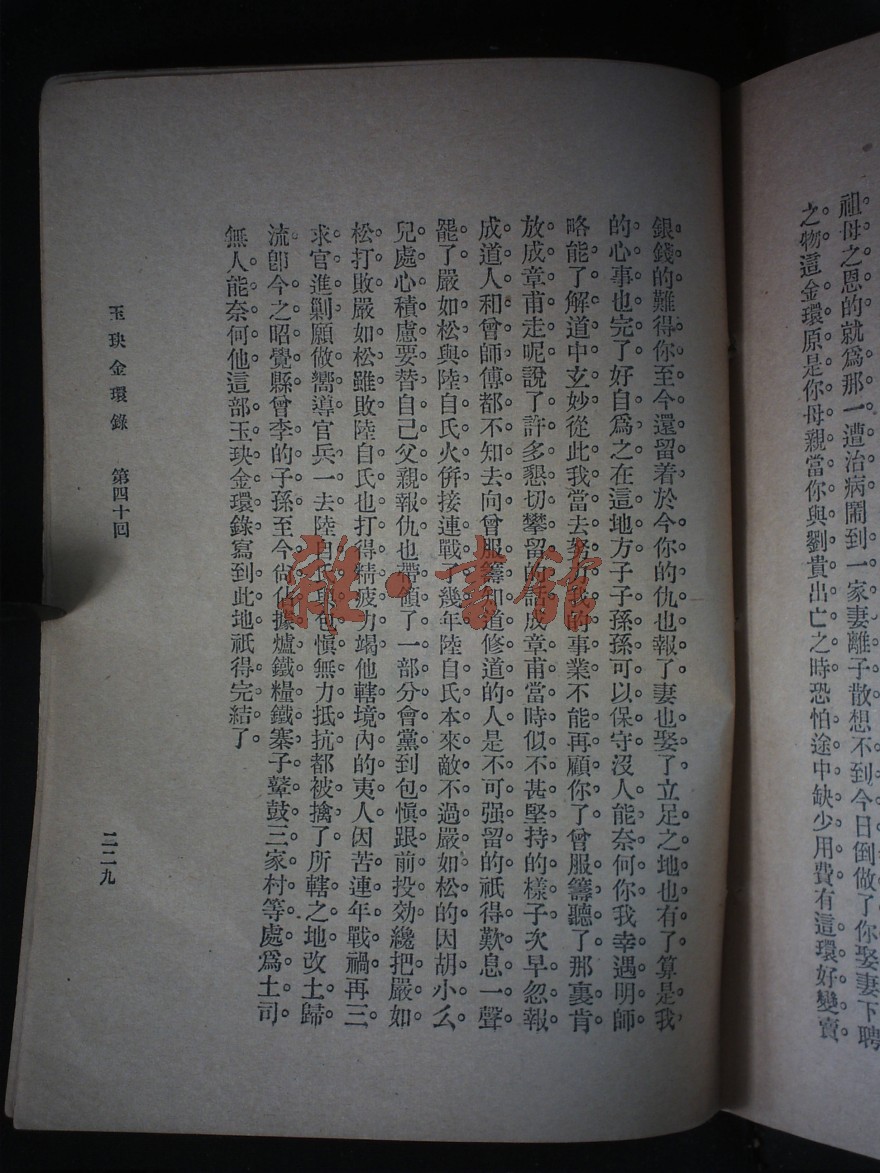 祖母之恩的就爲那一遭治病鬧到一家妻離子散想不到今日倒做了你娶妻下聘
之物這金環原是你母親當你與劉貴出亡之時恐怕途中缺少用費有這環好變賣
銀錢的難得你至今還留着於今你的仇也報了妻也娶了立足之地也有了算是我
的心事也完了好自爲之在這地方子子孫孫可以保守沒人能奈何你我幸遇明師
略能了解道中玄妙從此我當去努力我的事業不能再顧你了曾服籌聽了那裏肯
放成章甫走呢說了許多懇切攀留的話成章甫當時似不甚堅持的樣子次早忽報
成道人和曾師傅都不知去向曾服籌知道修道的人是不可强留的祇得歎息一聲
罷了嚴如松與陸白氏火併接連戰了幾年陸白氏本來敵不過嚴如松的因胡小幺
兒處心積慮要替自己父親報仇也帶領了一部分會黨到包愼跟前投効纔把嚴如
松打敗嚴如松雖敗陸白氏也打得精疲力竭他轄境內的夷人因苦連年戰禍再三
求官進剿願做嚮導官兵一去陸白氏與包愼無力抵抗都被擒了所轄之地改土歸
流卽今之昭覺縣曾李的子孫至今尙佔據爐鐵糧鐵寨子鼙鼓三家村等處爲土司
無人能奈何他這部玉玦金環錄寫到此地祇得完結了
玉玦金環錄 第四十回 二二九
雜·書館